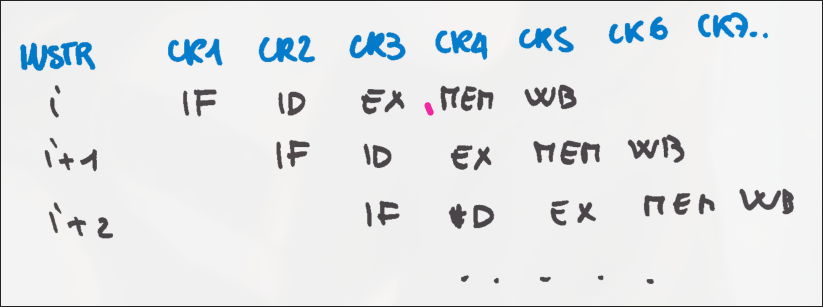 INSTR CK1 CK2 CK3 CK4 CK5 CK6 CK7..
i IF ID EX MEM WB
i+1 IF ID EX MEM WB
i+2 IF ID EX MEM WB
. . . . .